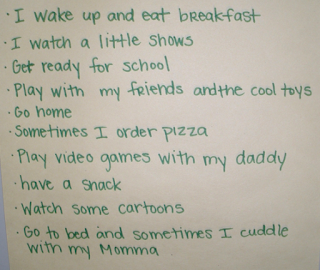 · I wake up and eat breakfast
· I watch a little shows
· Get ready for school
· Play with my friends and the cool toys
· Go home
· Sometimes I order pizza
· Play video games with my daddy
· have a snack
· Watch some cartoons
· Go to bed and sometimes I cuddle
with my Momma